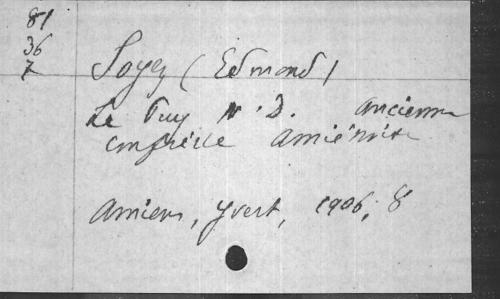 81
36
7
Soyez (Edmond)
Le Puy N. D. ancienne
confrérie Amiénoise
Amiens, Yvert, 1906, 8